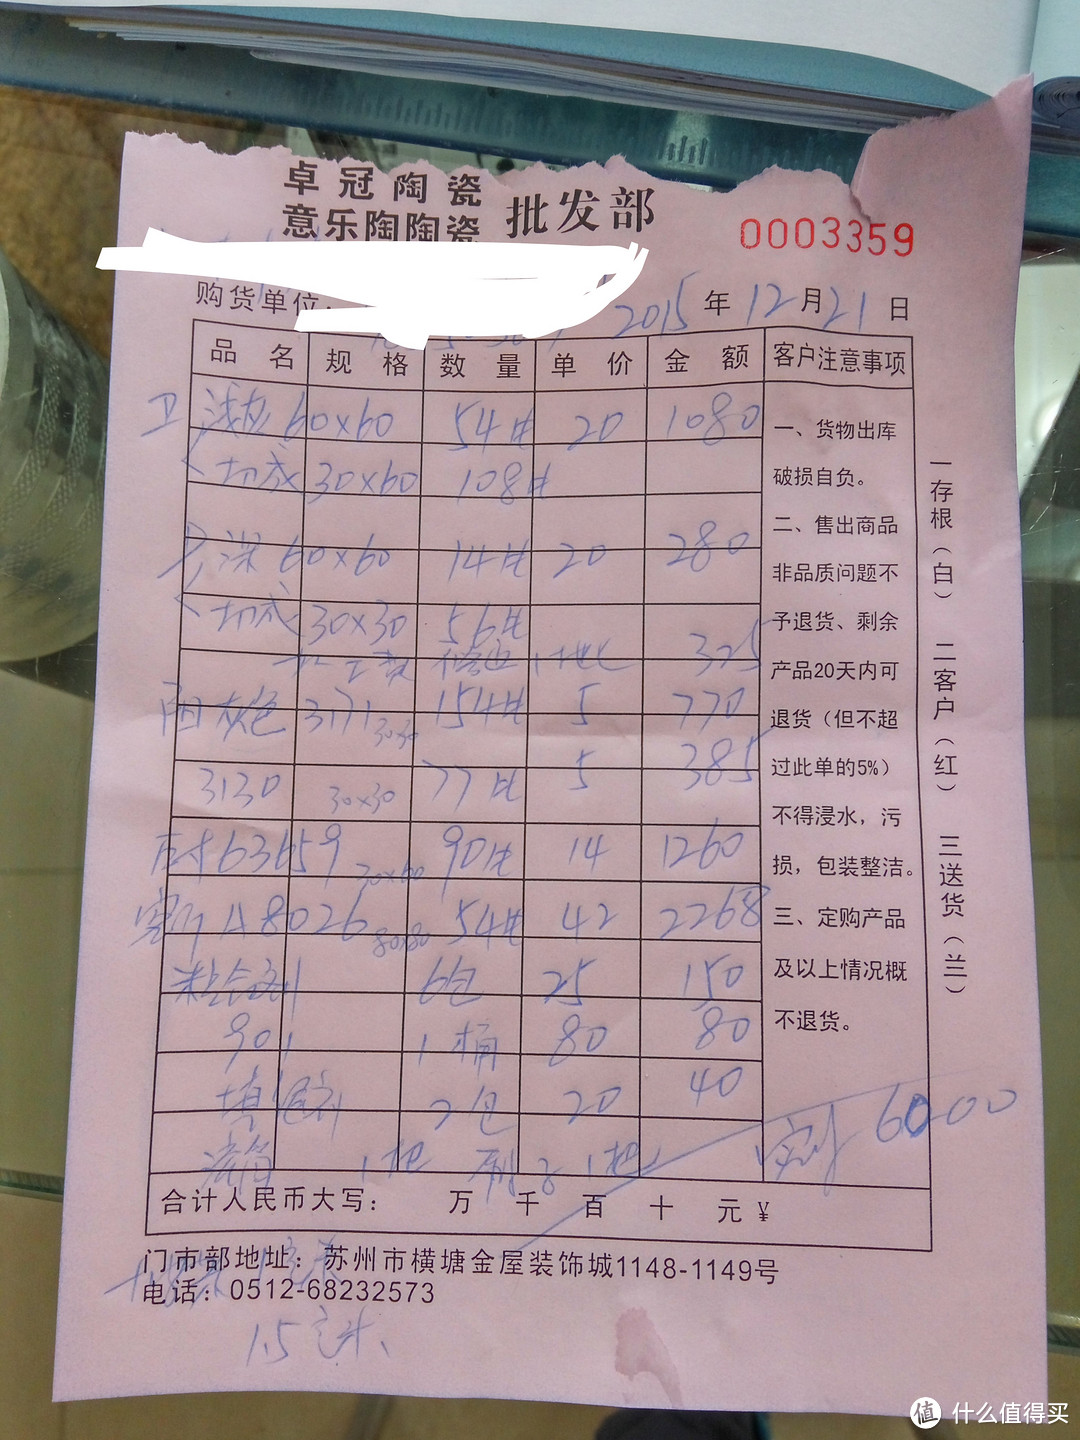 卓冠陶瓷
意乐陶陶瓷 批发部
0003359
购货单位: 2015年12月21日
品名 规格 数量 单价 金额 客户注意事项
卫 浅灰 60x60 54片 20 1080
切成 30x60 108片
深 60x60 14片 20 280
切成 30x30 56片
加工费 325
灰色 3171 30x30 154片 5 770
3130 30x30 77片 5 385
63659 30x60 90片 14 1260
48026 80x80 54片 42 2268
粘合剂 6包 25 150
901 1桶 80 80
填缝剂 2包 20 40
滚筒 1把 刷子 1把
6000
一、货物出库
破损自负。
二、售出商品
非品质问题不
予退货、剩余
产品20天内可
退货（但不超
过此单的5%）
不得浸水，污
损，包装整洁。
三、定购产品
及以上情况概
不退货。
一存根（白） 二客户（红） 三送货（兰）
合计人民币大写： 万 千 百 十 元 ¥
门市部地址：苏州市横塘金屋装饰城1148-1149号
电话：0512-68232573
1.5
值 什么值得买